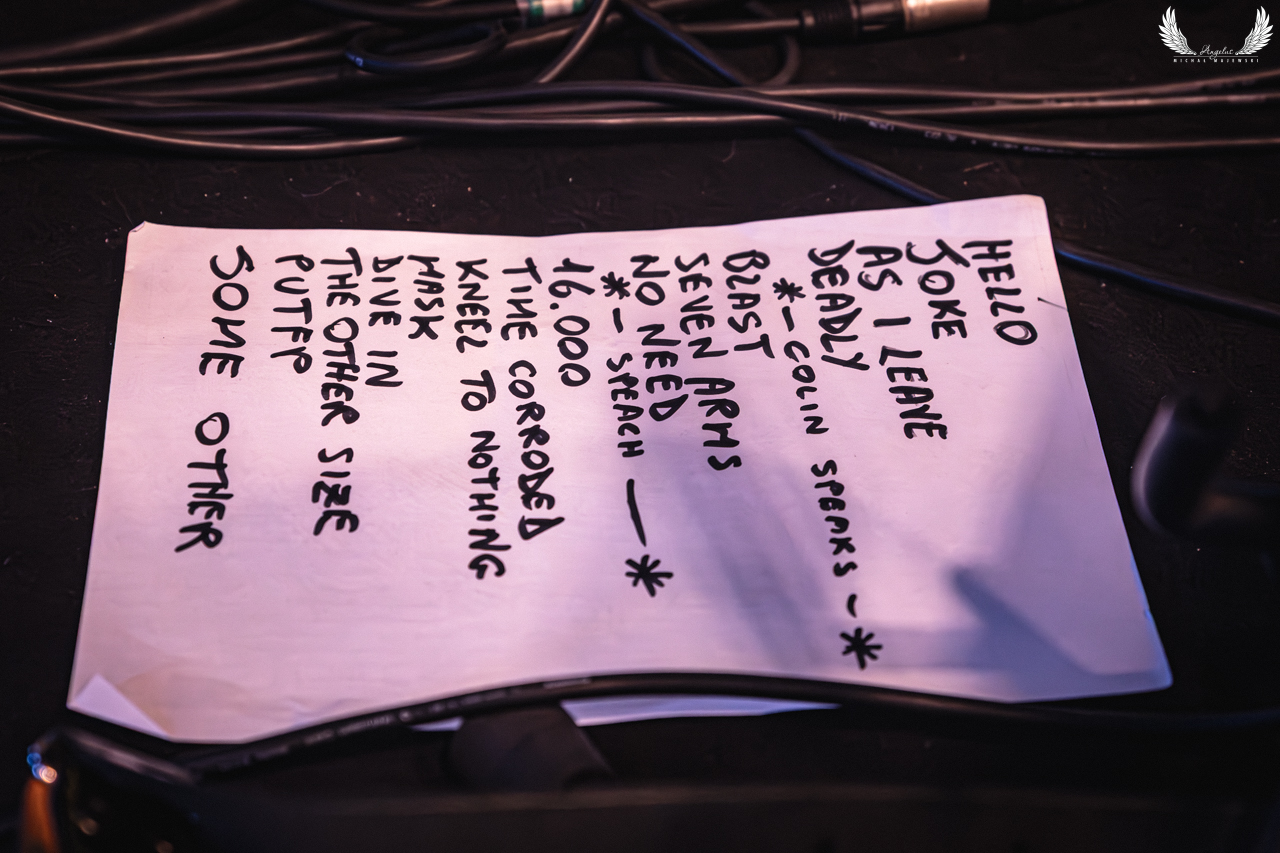 HELLO
JOKE
AS I LEAVE
DEADLY
*-COLIN SPEAKS-*
BLAST
SEVEN ARMS
NO NEED
*- SPEACH -*
16.000
TIME CORRODED
KNEEL TO NOTHING
MASK
DIVE IN
THE OTHER SIZE
PUTFP
SOME OTHER
Angelus
MICHAŁ MAJEWSKI